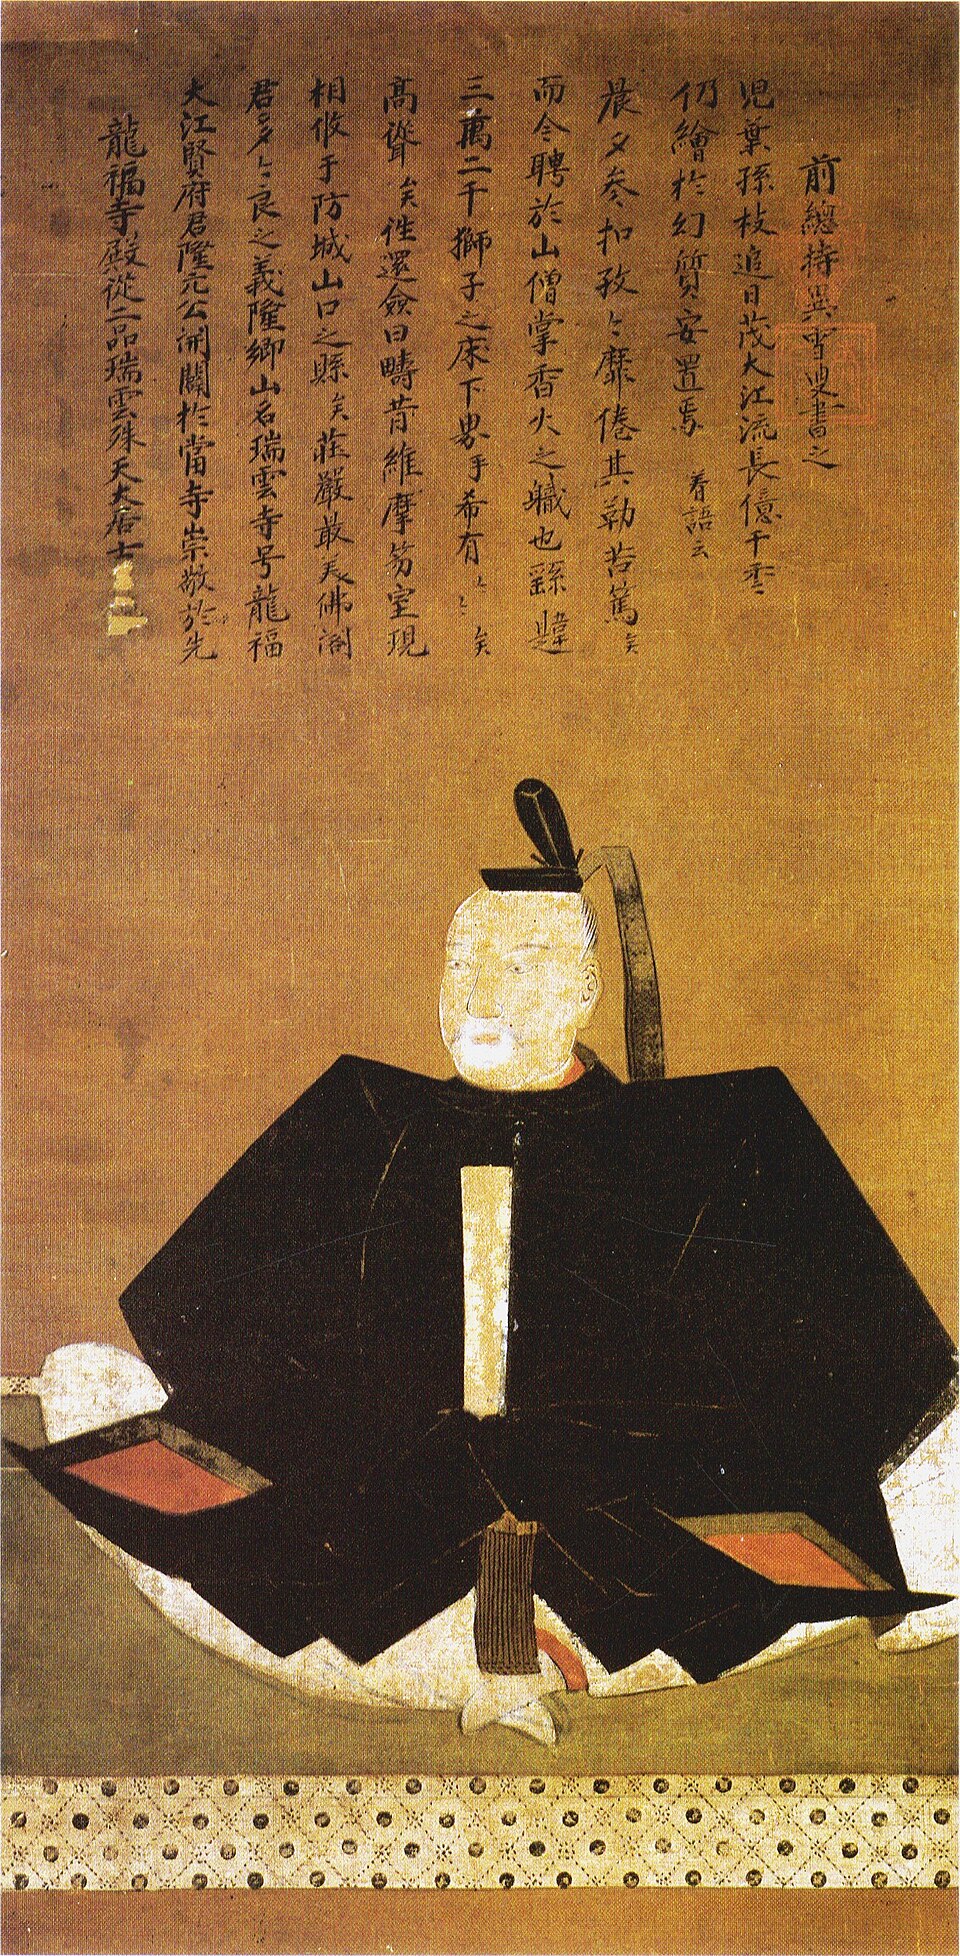 龍福寺殿從二品瑞雲珠天大居士
大江賢府君隆元公開闢於當寺崇敬於先
君多々良之義隆卿山名瑞雲寺号龍福
相攸于防城山口之縣矣莊嚴敢美佛閣
高聳矣性還僉曰疇昔維摩笏室現
三萬二千獅子之床下界乎希有々々矣
而令聘於山僧掌香火之職也繇
晨夕参扣孜々靡倦其勤苦篤矣
仍繪於幻質安置焉 着語云
児葉孫枝追日茂大江流長億千
前總持異雪叟書之